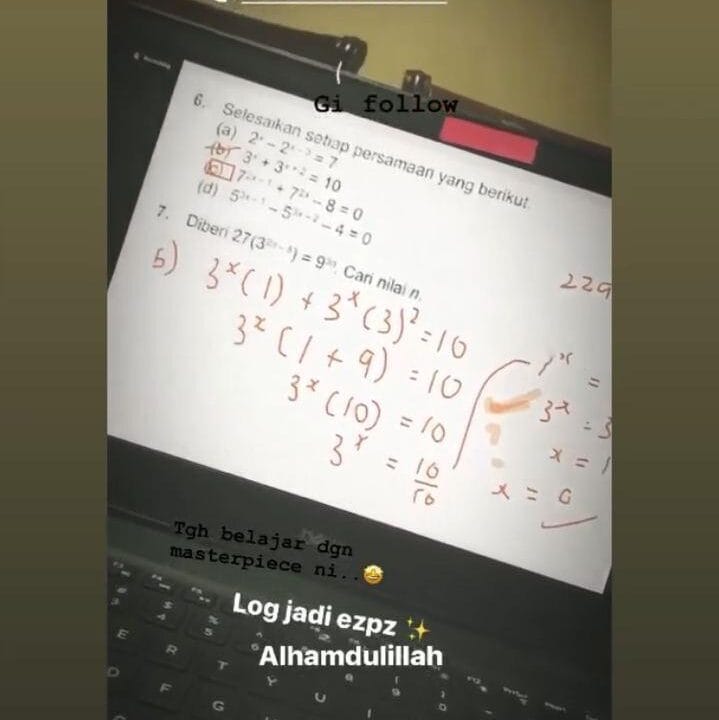 Gi follow
6. Selesaikan setiap persamaan yang berikut.
(a) 2ˣ – 2ˣ⁻³ = 7
(b) 3ˣ + 3ˣ⁺² = 10
(c) 7²ˣ⁻¹ + 7²ˣ – 8 = 0
(d) 5³ˣ⁻¹ – 5³ˣ⁻² – 4 = 0
7. Diberi 27(3 ) = 9 . Cari nilai n.
229
b) 3ˣ(1) + 3ˣ(3)² = 10
3ˣ(1 + 9) = 10
3ˣ(10) = 10
3ˣ = 10/10
3ˣ = 3
x = 1
x = 0
Tgh belajar dgn
masterpiece ni..🤩
Log jadi ezpz ✨
Alhamdulillah
3 4 5 6
E R T Y U I
D F G